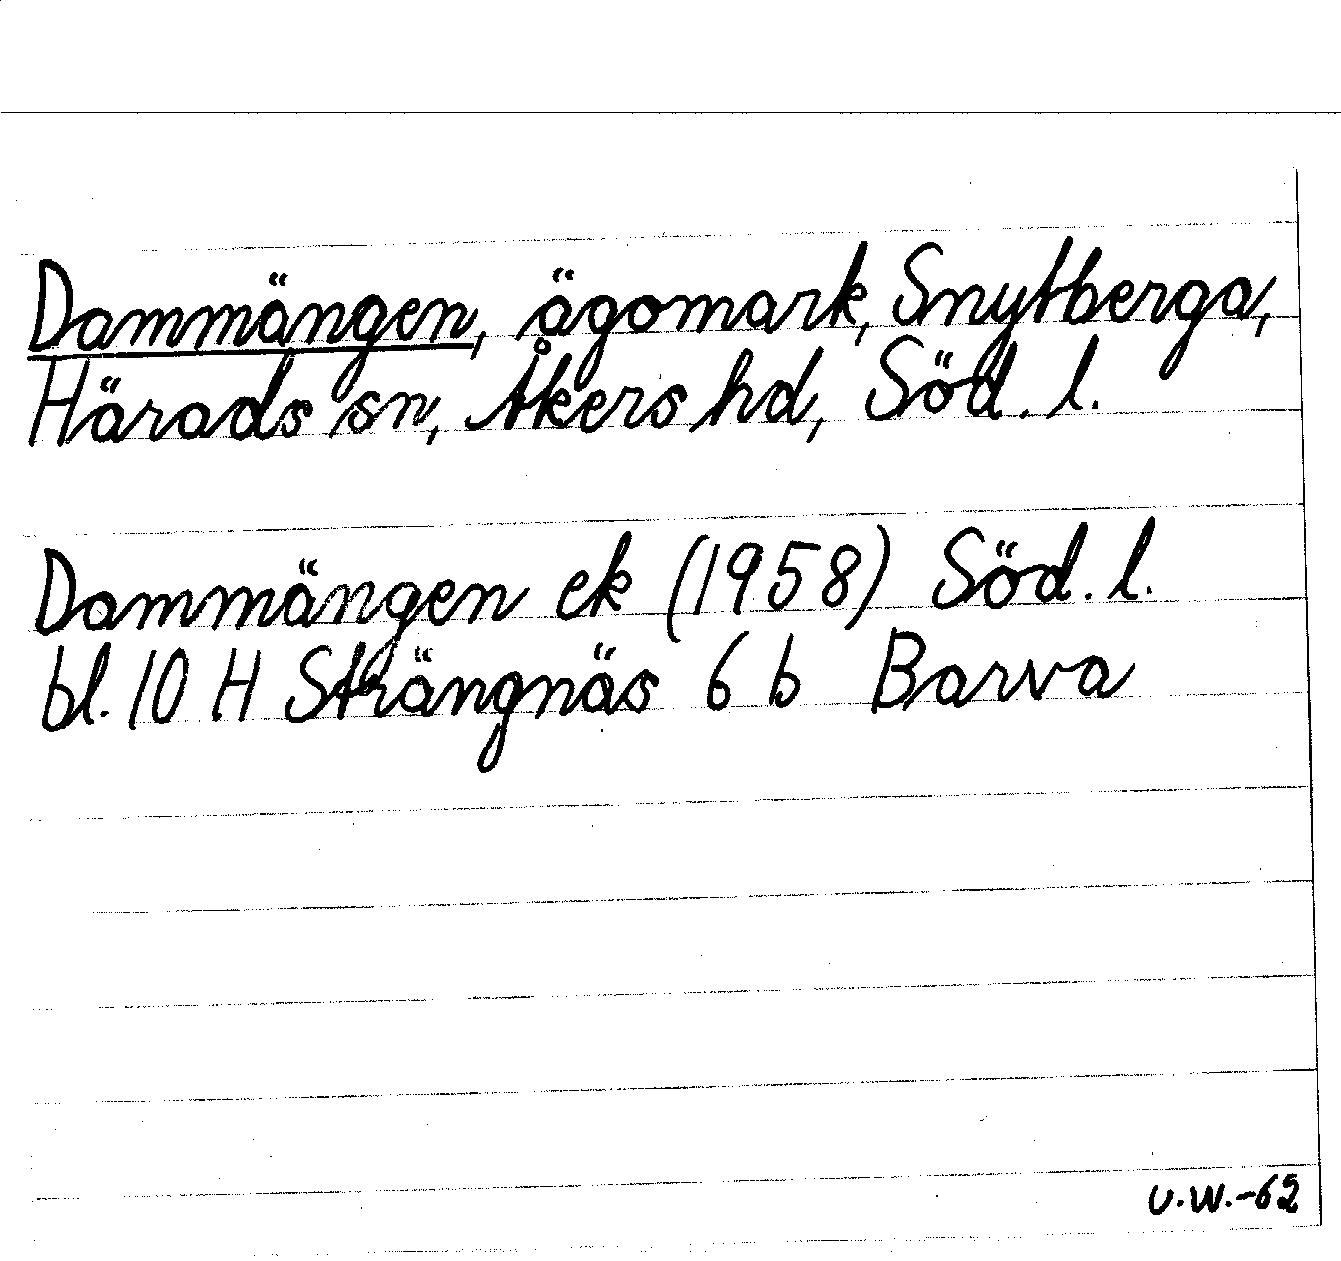 Dammängen, ägomark, Snytberga,
Härads sn, Åkers hd, Söd. l.
Dammängen ek (1958) Söd. l.
bl. 10 H Strängnäs 6 b Barva
U.W.-62